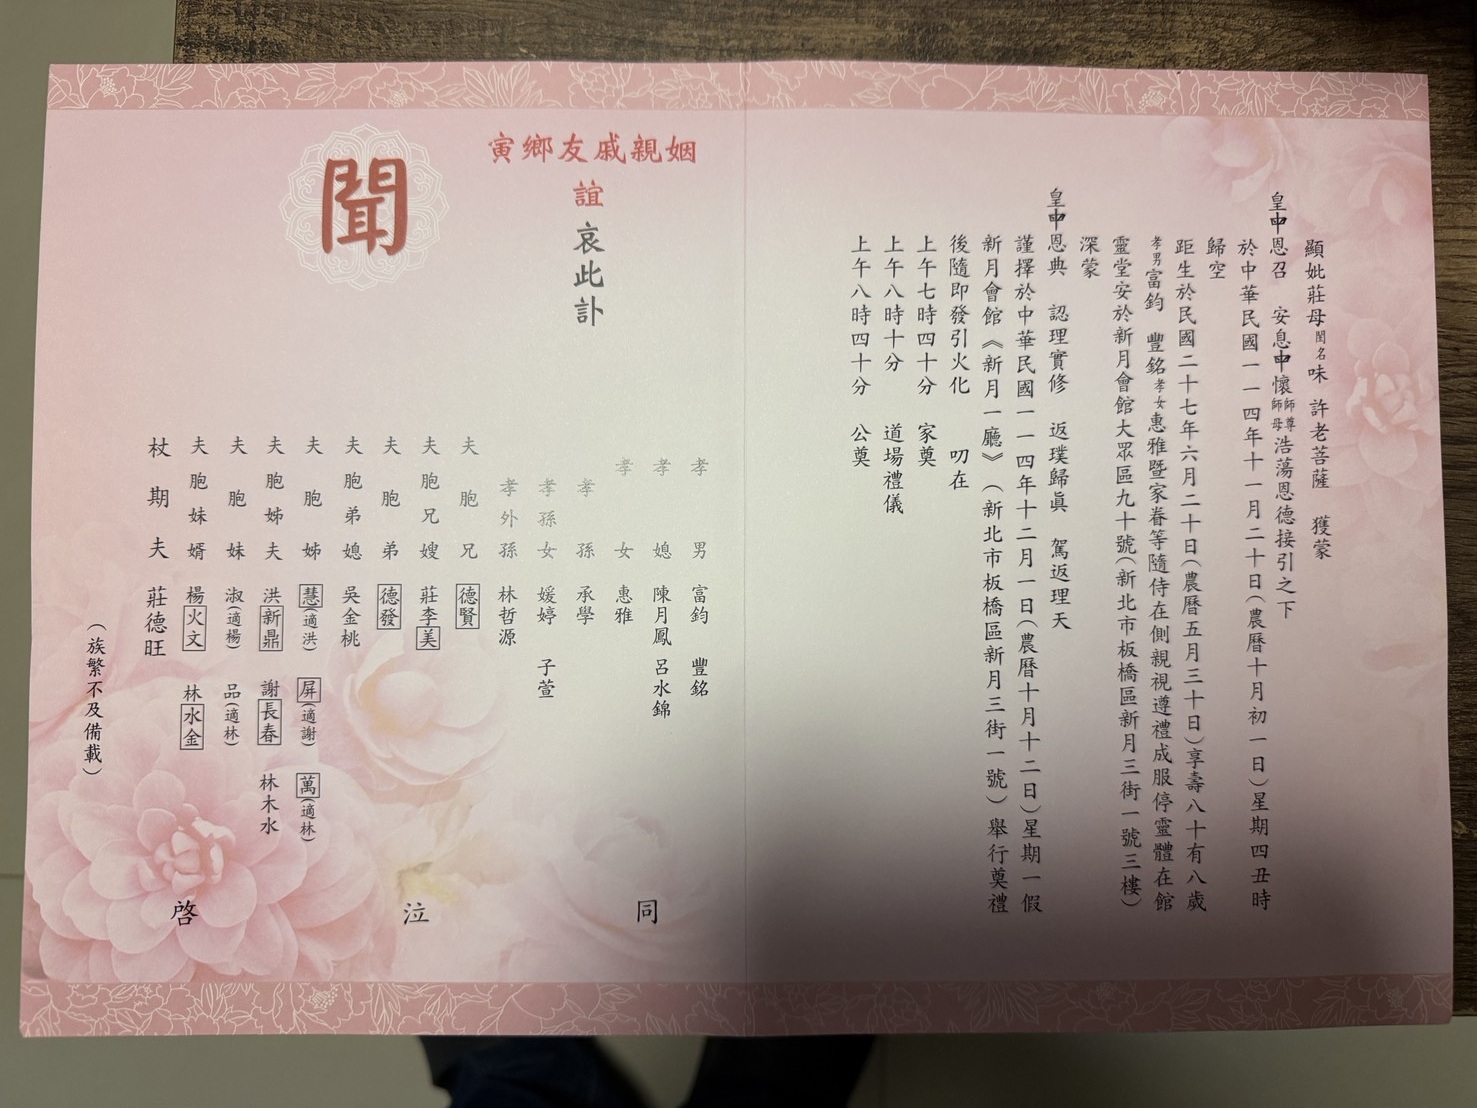 顯妣莊母閨名味 許老菩薩 獲蒙
皇申恩召 安息申懷師尊師母浩蕩恩德接引之下
於中華民國一一四年十一月二十日(農曆十月初一日)星期四丑時
歸空
距生於民國二十七年六月二十日(農曆五月三十日)享壽八十有八歲
孝男富鈞 豐銘孝女惠雅暨家眷等隨侍在側親視遵禮成服停靈體在館
靈堂安於新月會館大眾區九十號(新北市板橋區新月三街一號三樓)
深蒙
皇申恩典 認理實修 返璞歸真 駕返理天
謹擇於中華民國一一四年十二月一日(農曆十月十二日)星期一假
新月會館《新月一廳》(新北市板橋區新月三街一號)舉行奠禮
後隨即發引火化 叨在
上午七時四十分 家奠
上午八時十分 道場禮儀
上午八時四十分 公奠
姻親戚友鄉寅
誼哀此訃
聞
孝男 富鈞 豐銘
孝媳 陳月鳳 呂水錦
孝女 惠雅
孝孫 承學
孝孫女 媛婷 子萱
孝外孫 林哲源
夫胞兄 德賢
夫胞兄嫂 莊李美
夫胞弟 德發
夫胞弟媳 吳金桃
夫胞姊 慧(適洪) 屏(適謝) 萬(適林)
夫胞姊夫 洪新鼎 謝長春 林木水
夫胞妹 淑(適楊) 品(適林)
夫胞妹婿 楊火文 林水金
杖期夫 莊德旺
(族繁不及備載)
同 泣 啓